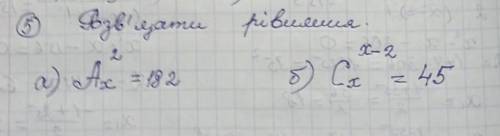 ⑤ Розв'язати рівняння.
а) Aₓ² = 182 б) Cₓˣ⁻² = 45